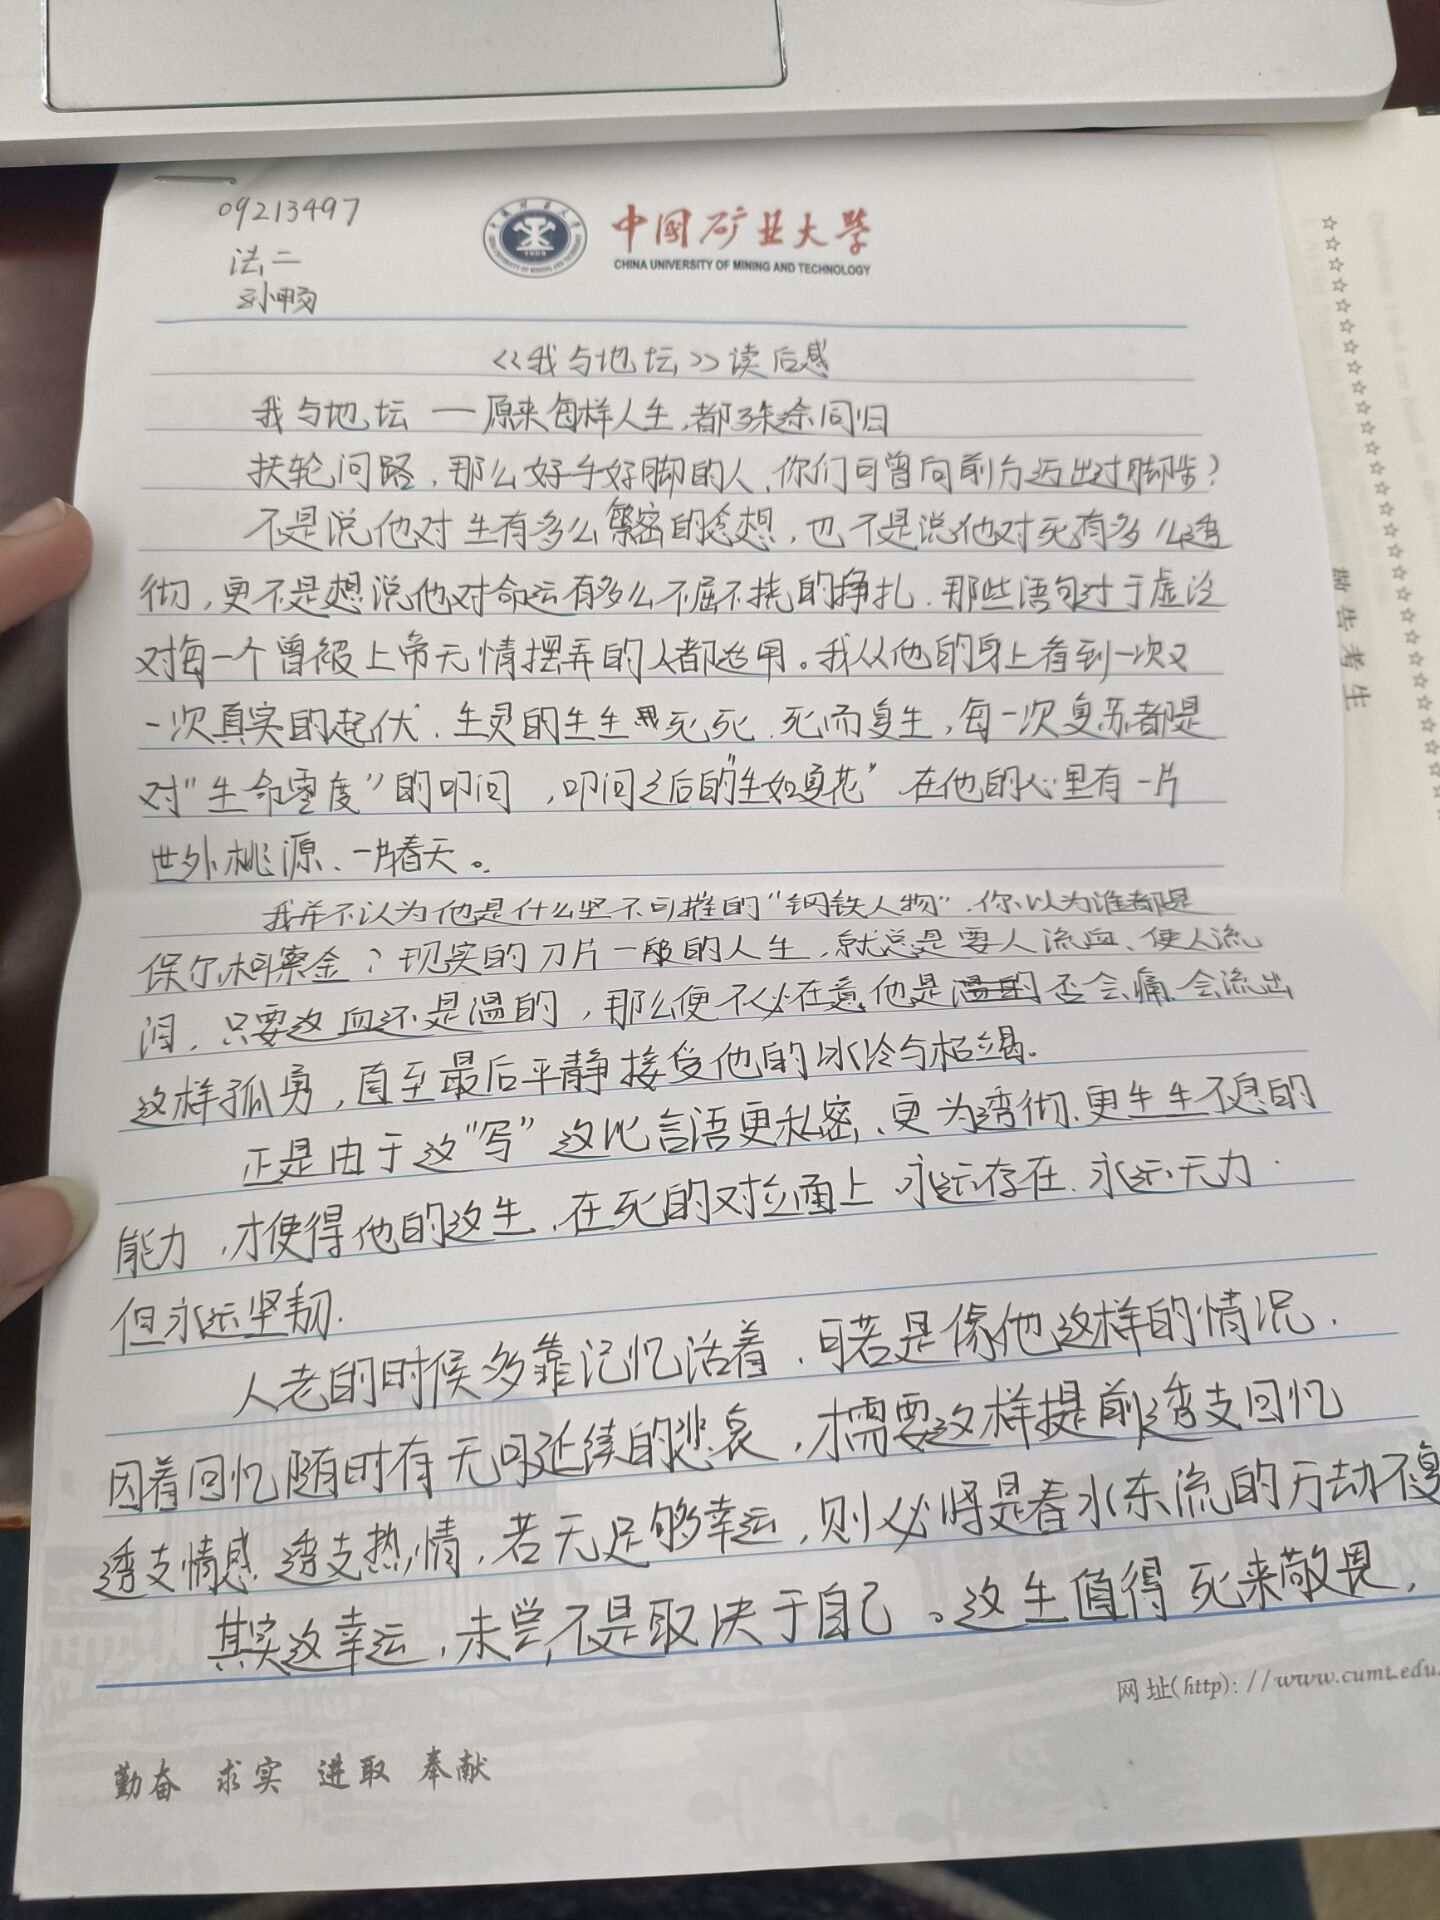 09213497
法二
孙畅
中国矿业大学
CHINA UNIVERSITY OF MINING AND TECHNOLOGY
<<我与地坛>>读后感
我与地坛—原来每样人生,都殊途同归
扶轮问路,那么好手好脚的人、你们可曾向前方迈出过脚步?
不是说他对生有多么繁密的念想,也不是说他对死有多么透
彻,更不是想说他对命运有多么不屈不挠的挣扎.那些语句过于虚泛
对每一个曾被上帝无情摆弄的人都适用。我从他的身上看到一次又
一次真实的起伏、生灵的生生死死.死而复生,每一次复苏都是
对"生命零度"的叩问,叩问之后的"生如夏花".在他的心里有一片
世外桃源、一片春天。
我并不认为他是什么坚不可摧的"钢铁人物".你以为谁都是
保尔柯察金?现实的刀片一般的人生,就总是要人流血、使人流
泪.只要这血还是温的,那么便不必在意他是否会痛.会流出
这样孤勇,直至最后平静接受他的冰冷与枯竭.
正是由于这"写"这比言语更私密、更为透彻.更生生不息的
能力,才使得他的这生.在死的对立面上.永远存在.永远无力.
但永远坚韧.
人老的时候多靠记忆活着.可若是像他这样的情况.
因着回忆随时有无可延续的悲哀,才需要这样提前透支回忆
透支情感 透支热情,若无足够幸运,则必将是春水东流的万劫不复
其实这幸运,未尝不是取决于自己。这生值得死来敬畏,
网址(http)://www.cumt.edu.
勤奋 求实 进取 奉献
敬告考生